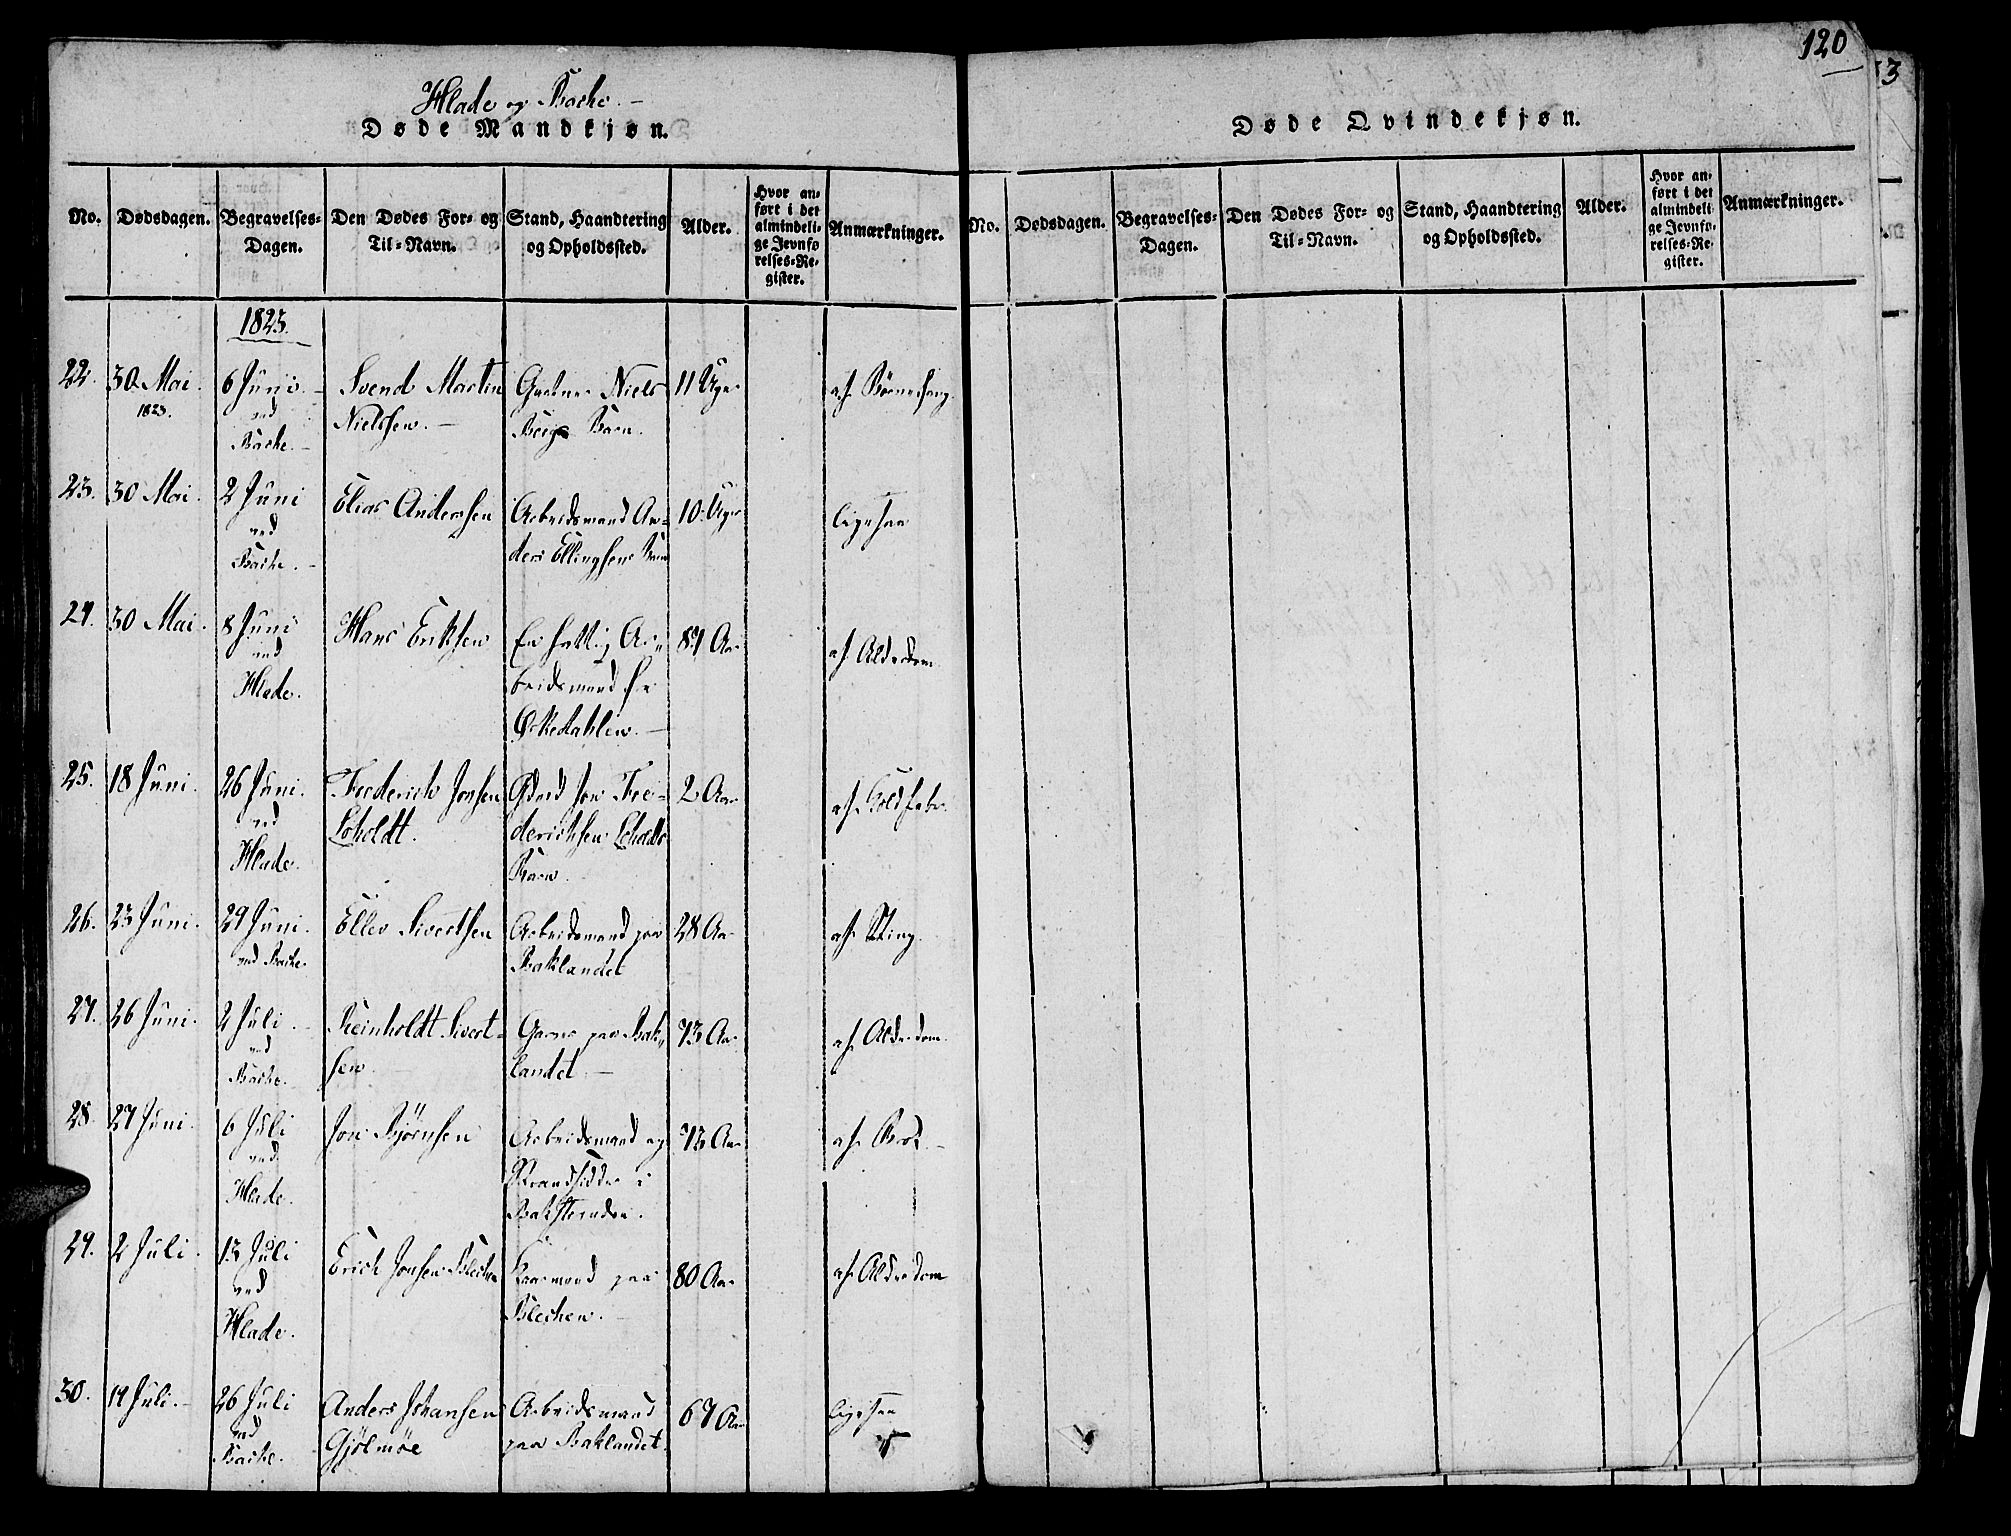 120
3
Hlade og Bache. –
Døde Mandkjøn.
No. Dødsdagen. Begravelses-Dagen. Den Dødes For- og Til-Navn. Stand, Haandtering og Opholdssted. Alder. Hvor anført i det almindelige Jevnførelses-Register. Anmærkninger.
1823.
22. 30 Mai. 1823. 6 Juni. – ved Bache. – Svend Martin Nielssen. – Niels Bergs Barn. 11 Uger af Børnesyg.
23. 30 Mai. 2 Juni ved Bache. – Elias Anderssen Arbeidsmand Anders Ellingsens Barn 10 Uger ligesaa
24. 30 Mai. 8 Juni ved Hlade. Hans Eriksen En fattig Arbeidsmand fra Ørkedahlen. – af Alderdom
25. 18 Juni. 26 Juni. ved Hlade. Frederich Jonsen Loholdt. Jon Frederichsen Loholdts Barn. 2 Aar
26. 23 Juni. 29 Juni. ved Bache. Ellev Sivertsen Arbeidsmand paa Baklandet 28 Aar af Sting.
27. 26 Juni. 2 Juli. – ved Bache. Reinholdt Sivertsen – paa Baklandet. – 73 Aar af Alderdom.
28. 27 Juni. 6 Juli ved Hlade. Jon Bjørnsen Arbeidsmand og Strandsidder i 73 Aar af
29. 2 Juli. 13 Juli ved Hlade. Erich Jonsen Blechen Kaarmand paa Blechen. – 80 Aar af Alderdom
30. 14 Juli. – 26 Juli ved Bache. Anders Johansen Gjølmøe Arbeidsmand paa Baklandet. 67 Aar ligesaa
Døde Qvindekjøn.
No. Dødsdagen. Begravelses-Dagen. Den Dødes For- og Til-Navn. Stand, Haandtering og Opholdssted. Alder. Hvor anført i det almindelige Jevnførelses-Register. Anmærkninger.